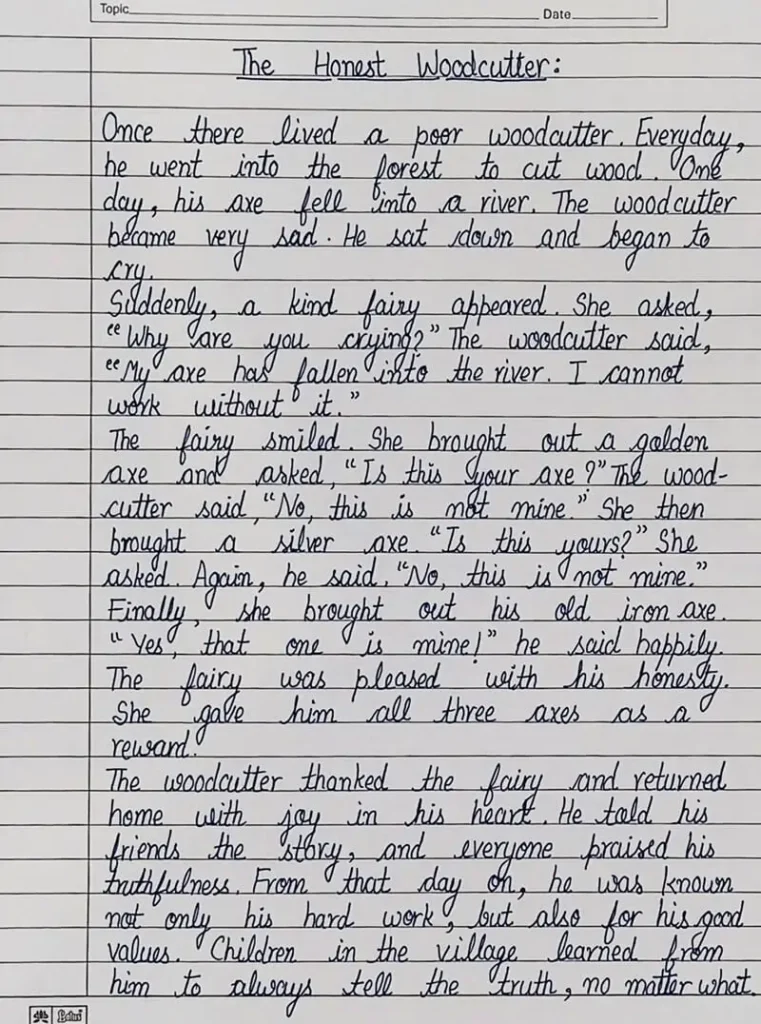 Topic Date
The Honest Woodcutter:
Once there lived a poor woodcutter. Everyday,
he went into the forest to cut wood. One
day, his axe fell into a river. The woodcutter
became very sad. He sat down and began to
cry.
Suddenly, a kind fairy appeared. She asked,
“Why are you crying?” The woodcutter said,
“My axe has fallen into the river. I cannot
work without it.”
The fairy smiled. She brought out a golden
axe and asked, “Is this your axe?” The wood-
cutter said, “No, this is not mine.” She then
brought a silver axe. “Is this yours?” She
asked. Again, he said, “No, this is not mine.”
Finally, she brought out his old iron axe.
“Yes, that one is mine!” he said happily.
The fairy was pleased with his honesty.
She gave him all three axes as a
reward.
The woodcutter thanked the fairy and returned
home with joy in his heart. He told his
friends the story, and everyone praised his
truthfulness. From that day on, he was known
not only his hard work, but also for his good
values. Children in the village learned from
him to always tell the truth, no matter what.